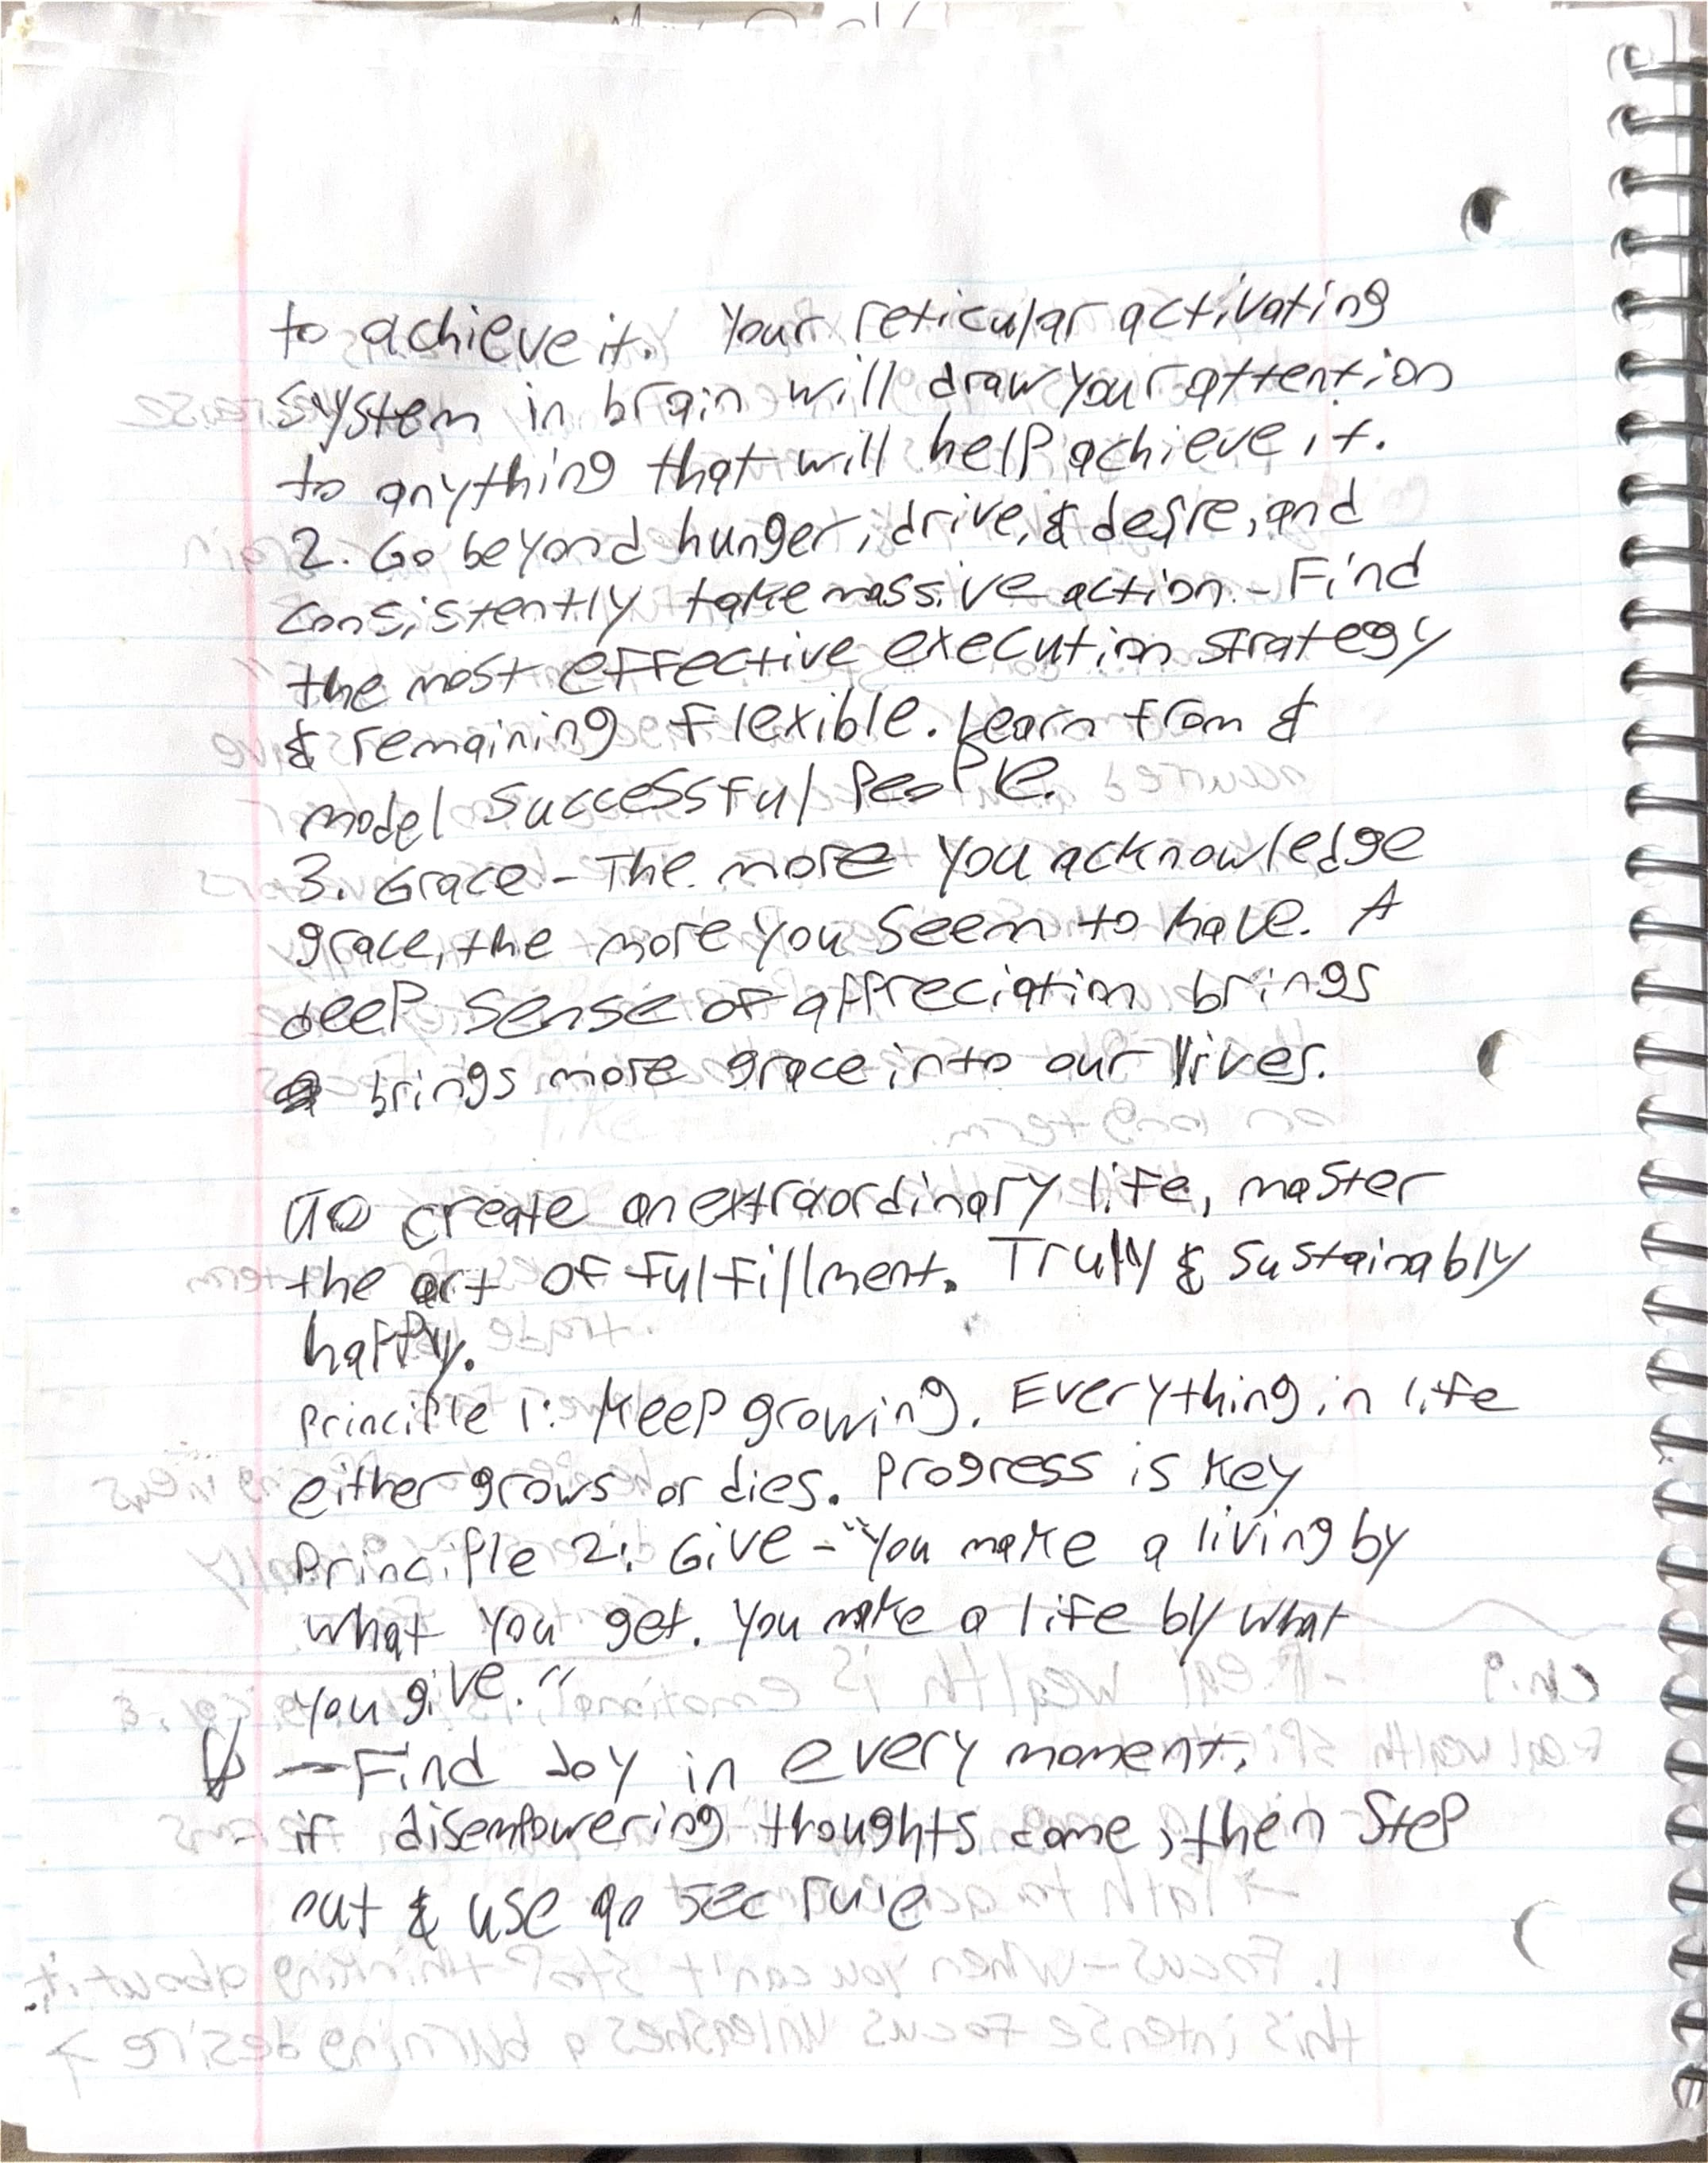 to achieve it. Your reticular activating
system in brain will draw your attention
to anything that will help achieve it.
2. Go beyond hunger, drive, & desire, and
consistently take massive action. - Find
the most effective execution strategy
& remaining flexible. Learn from &
model successful people.
3. Grace - The more you acknowledge
grace, the more you seem to have. A
deep sense of appreciation brings
brings more grace into our lives.
To create an extraordinary life, master
the art of fulfillment. Truly & sustainably
happy.
Principle 1: Keep growing. Everything in life
either grows or dies. Progress is key
Principle 2: Give - "You make a living by
what you get. You make a life by what
you give."
- Find joy in every moment.
- if disempowering thoughts come, then step
out & use 90 sec rule